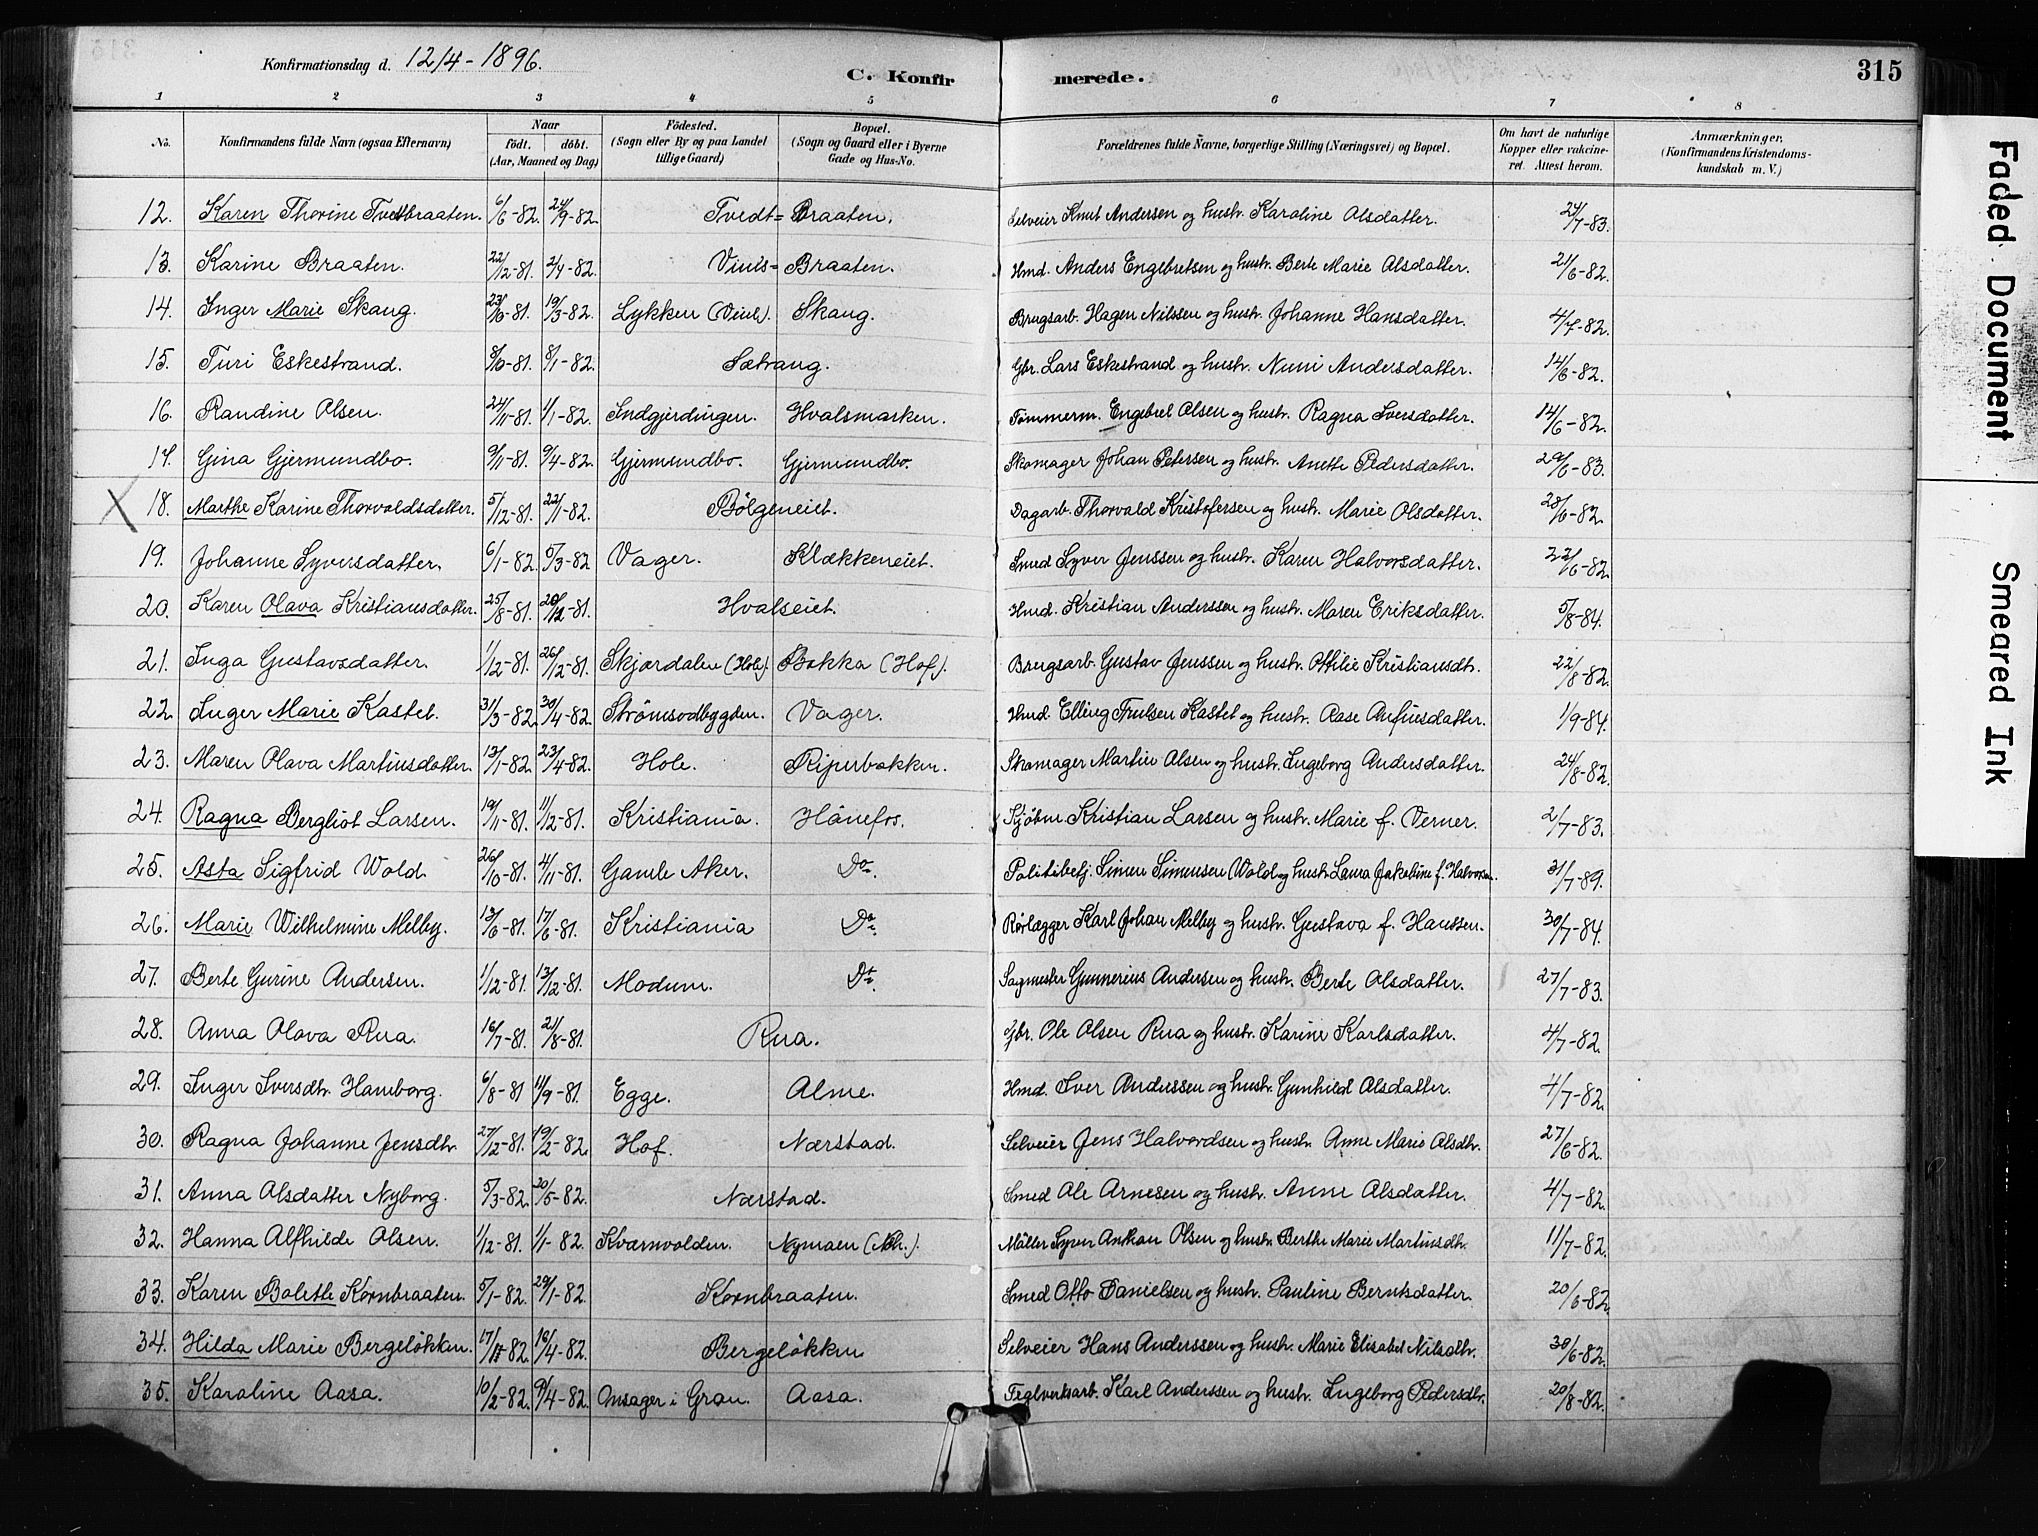 315
Konfirmationsdag d. 12/4 - 1896.
C. Konfirmerede.
1 2 3 4 5 6 7 8
No. Konfirmandens fulde Navn (ogsaa Efternavn) Naar født. døbt. (Aar, Maaned og Dag) Födested. (Sogn eller By og paa Landet tillige Gaard) Bopæl. (Sogn og Gaard eller i Byerne Gade og Hus-No. Forældrenes fulde Navne, borgerlige Stilling (Næringsvei) og Bopæl. Om havt de naturlige Kopper eller vakcineret. Attest herom. Anmærkninger, (Konfirmandens Kristendomskundskab m. V.)
12. Karen Thorine Tvedtbraaten. 6/6-82. 24/9-82. Tvedt=Braaten. Selveier Knut Andersen og hustr. Karoline Olsdatter. 24/7-83.
13. Karine Braaten. 22/12-81. 2/4-82. Viuls=Braaten. Hmd. Anders Engebretsen og hustr. Berte Marie Olsdatter. 21/6-82.
14. Inger Marie Skaug. 23/10-81. 19/3-82. Lykken (Viul). Skaug. Brugsarb. Hagen Nilssen og hustr. Johanne Hansdatter. 4/7-82.
15. Turi Eskestrand. 8/10-81. 8/1-82. Sætrang. Gbr. Lars Eskestrand og hustr. Nuni Andersdatter. 14/6-82.
16. Randine Olsen. 24/11-81. 1/1-82. Indgjerdingen. Hvalsmarken. Tømmerm. Engebret Olsen og hustr. Ragna Iversdatter. 14/6-82.
17. Gina Gjermundbo. 9/11-81. 9/4-82. Gjermundbo. Gjermundbo. Skomager Johan Petersen og hustr. Anette Pedersdatter. 29/6-83.
18. Marthe Karine Thorvaldsdatter. 5/12-81. 22/1-82. Bölgeneiet. Dagarb. Thorvald Kristofersen og hustr. Marie Olsdatter. 28/6-82.
19. Johanne Syversdatter. 6/1-82. 5/3-82. Vager. Klækkeneiet. Smed Syver Jenssen og hustr. Karen Halvorsdatter. 22/6-82.
20. Karen Olava Kristiansdatter. 25/8-81. 26/12-81. Hvalseiet. Hmd. Kristian Anderssen og hustr. Maren Eriksdatter. 5/8-84.
21. Inga Gustavsdatter. 1/12-81. 26/12-81. Skjærdalen (Hole). Bakka (Hof). Brugsarb. Gustav Jenssen og hustr. Ottilie Kristiansdtr. 22/8-82.
22. Inger Marie Kastet. 31/3-82. 30/4-82. Strömsodbygden. Vager. Hmd. Elling Trulsen Kastet og hustr. Aase Anfinsdatter. 1/9-84.
23. Maren Olava Martinsdatter. 13/1-82. 23/4-82. Hole. Ripurbakken. Skomager Martin Olsen og hustr. Ingeborg Andersdatter. 24/8-82.
24. Ragna Bergliot Larsen. 19/11-81. 11/12-81. Kristiania. Hönefos. Kjöbm. Kristian Larsen og hustr. Marie f. Verner. 2/7-83.
25. Asta Sigfrid Wold. 26/10-81. 4/11-81. Gamle Aker. Do. Politibetj. Simen Simensen Wold og hustr. Laura Jakobine f. Halvorsen. 31/7-89.
26. Marie Wilhelmine Melby. 13/6-81. 17/6-81. Kristiania Do. Rörlægger Karl Johan Melby og hustr. Gustava f. Hanssen. 30/7-84.
27. Berte Gurine Andersen. 1/12-81. 13/12-81. Modum. Do. Sagmester Gunnerius Andersen og hustr. Berte Olsdatter. 27/7-83.
28. Anna Olava Rua. 16/7-81. 21/8-81. Rua. Gbr. Ole Olsen Rua og hustr. Karine Karlsdatter. 4/7-82.
29. Inger Iversdtr. Hamborg. 6/8-81. 11/9-81. Egge. Alme. Hmd. Iver Anderssen og hustr. Gunhild Olsdatter. 4/7-82.
30. Ragna Johanne Jensdtr. 27/12-81. 19/2-82. Hof. Nærstad. Selveier Jens Halvordsen og hustr. Anne Marie Olsdtr. 27/6-82.
31. Anna Olsdatter Nyborg. 5/3-82. 20/5-82. Nærstad. Smed Ole Arnesen og hustr. Anne Olsdatter. 4/7-82.
32. Hanna Alfhilde Olsen. 1/12-81. 1/1-82. Kværnvolden. Nymoen. Möller Syver Anthon Olsen og hustr. Berthe Marie Martinsdtr. 11/7-82.
33. Karen Bolette Kornbraaten. 5/1-82. 29/1-82. Kornbraaten. Smed Otto Danielsen og hustr. Pauline Berntsdatter. 20/6-82.
34. Hilda Marie Bergelökken. 17/-82. 16/4-82. Bergelökken Selveier Hans Anderssen og hustr. Marie Elisabet Nilsdtr. 30/6-82.
35. Karoline Aasa. 10/2-82. 9/4-82. Onsager i Gran. Aasa. Teglverksarb. Karl Anderssen og hustr. Ingeborg Pedersdtr. 20/8-82.
Faded Document
Smeared Ink